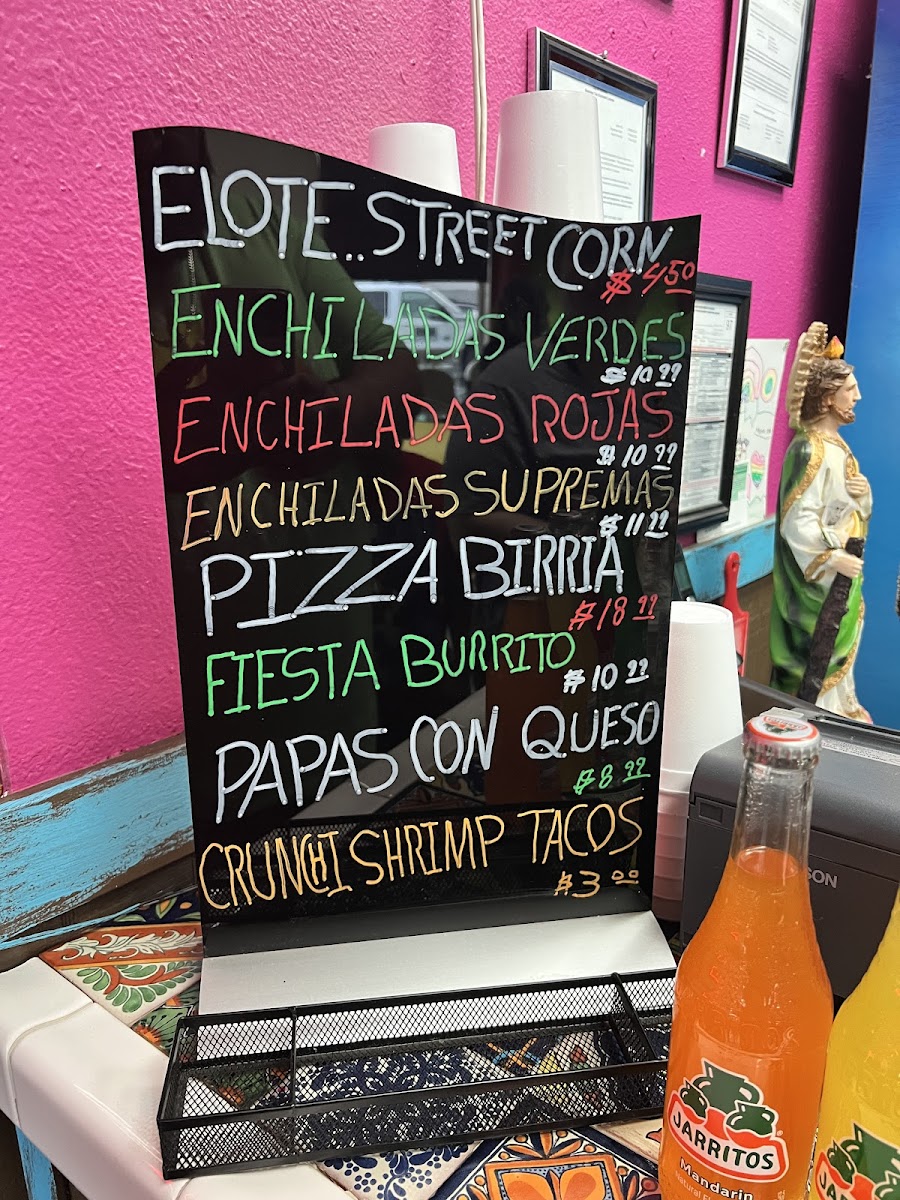 ELOTE.. STREET CORN
$4.50
ENCHILADAS VERDES
$10.99
ENCHILADAS ROJAS
$10.99
ENCHILADAS SUPREMAS
$11.99
PIZZA BIRRIA
$18.99
FIESTA BURRITO
$10.99
PAPAS CON QUESO
$8.99
CRUNCHI SHRIMP TACOS
$3.00
SON
JARRITOS
Mandarin